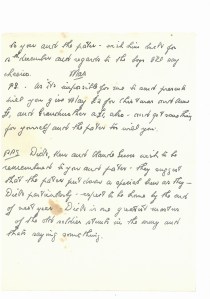 to you and the pater - wish him luck for
December and regards to the boys till my
cheerio.
P.S. As its impossible for me to send presents
will you give May £2 for this & Xmas and
£1, and Grandmother £1, also - and get something
for yourself and the pater too will you.
PPS. Dick, Ken and Claude wish to be
remembered to you and pater - they suggest
that the pater put down a special brew as they -
Dick particularly - expect to be home by the end
of next year. Dick is one greatest
of the old mother in the army and
thats saying something.